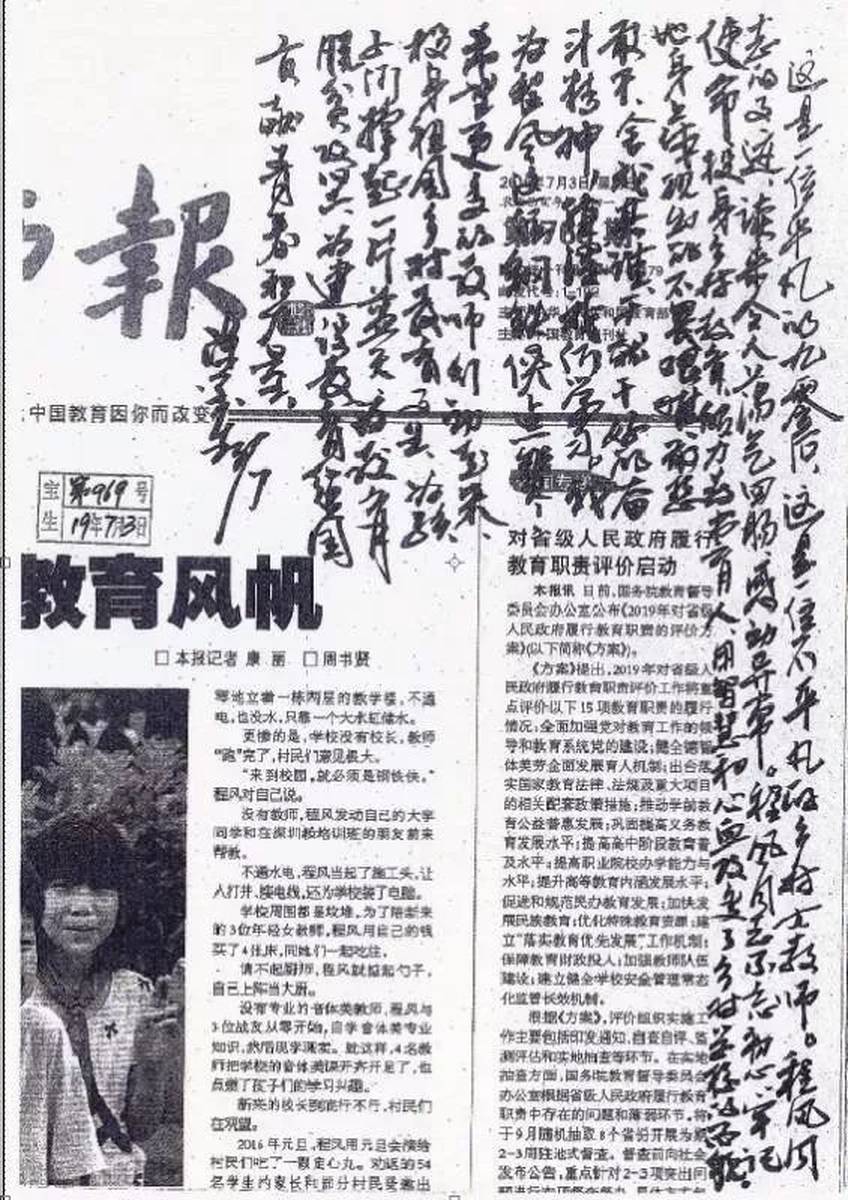 这是一位平凡的九零后,这是一位不平凡的乡村女教师。程风同
志的事迹,读来令人荡气回肠、感动异常。程风同志不忘初心、牢记
使命,投身乡村教育,倾力教书育人,用智慧和心血改变了乡村学校的面貌。
她身上体现出的不畏艰难、勇挑
敢于
斗精神,值得我们学习。我
为程风这
希望更多的教师行动起来,
投身祖国乡村教育事业,为孩
子们撑起一片蓝天,为教育
脱贫攻坚、为建设教育强国
贡献青春和力量。
报
2019年7月3日
中国教育因你而改变
宝生
第969号
19年7月3日
教育风帆
□本报记者 康 丽 □周书贤
零地立着一栋两层的教学楼,不通
电,也没水,只靠一个大水缸储水。
更惨的是,学校没有校长,教师
“跑”完了,村民们意见极大。
“来到校园,就必须是钢铁侠。”
程风对自己说。
没有教师,程风发动自己的大学
同学和在深圳教培训班的朋友前来
帮教。
不通水电,程风当起了施工头,让
人打井、接电线,还为学校装了电脑。
学校周围都是坟堆,为了陪新来
的3位年轻女教师,程风用自己的钱
买了4张床,同她们一起吃住。
请不起厨师,程风就掂起勺子,
自己上阵当大厨。
没有专业的音体美教师,程风与
3位战友从零开始,自学音体美专业
知识,然后现学现卖。就这样,4名教
师把学校的音体美课开齐开足了,也
点燃了孩子们的学习兴趣。
新来的校长到底行不行,村民们
在观望。
2016年元旦,程风用元旦会演给
村民们吃了一颗定心丸。劝返的54
名学生的家长和部分村民受邀出
对省级人民政府履行
教育职责评价启动
本报讯 日前,国务院教育督导
委员会办公室公布《2019年对省级
人民政府履行教育职责的评价方
案》(以下简称《方案》)。
《方案》提出,2019年对省级人
民政府履行教育职责评价工作将重
点评价以下15项教育职责的履行
情况:全面加强党对教育工作的领
导和教育系统党的建设;健全德智
体美劳全面发展育人机制;出台落
实国家教育法律、法规及重大项目
的相关配套政策措施;推动学前教
育公益普惠发展;巩固提高义务教
育发展水平;提高高中阶段教育普
及水平;提高职业院校办学能力与
水平;提升高等教育内涵发展水平;
促进和规范民办教育发展;加快发
展民族教育;优化特殊教育资源;建
立“落实教育优先发展”工作机制;
保障教育财政投入;加强教师队伍
建设;建立健全学校安全管理常态
化监管长效机制。
根据《方案》,评价组织实施工
作主要包括印发通知、自查自评、监
测评估和实地抽查等环节。在实地
抽查方面,国务院教育督导委员会
办公室根据省级人民政府履行教育
职责中存在的问题和薄弱环节,将
于9月随机抽取8个省份开展为期
2-3周驻地式督查。督查前向社会
发布公告,重点针对2-3项突出问